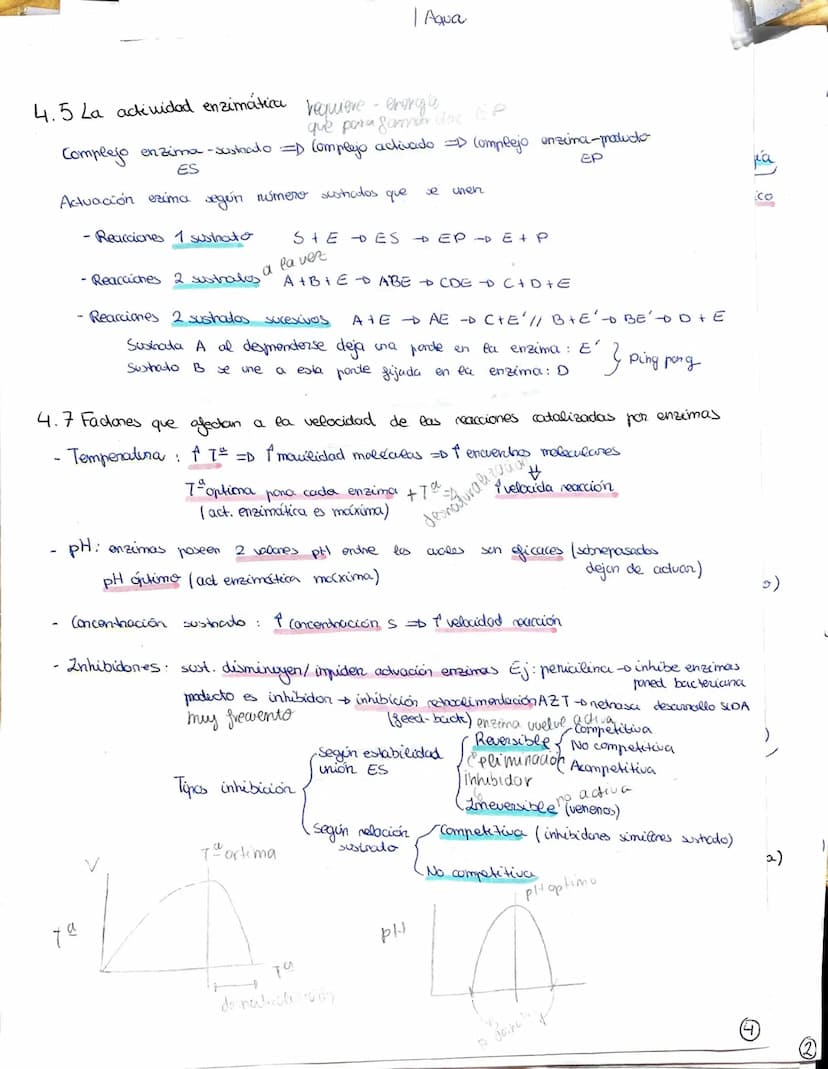 1 Agua
4.5 La actividad enzimática requiere - energía
que para EP
Complejo enzima-sustrato => Complejo activado => Complejo enzima-producto
ES EP
Actuación ezima según número sustratos que se unen
- Reacciones 1 sustrato S + E → ES → EP → E + P
- Reacciones 2 sustratos a la vez A + B + E → ABE → CDE → C + D + E
- Reacciones 2 sustratos sucesivos A + E → AE → C + E' // B + E' → BE' → D + E
Sustrato A al desprenderse deja una parte en la enzima: E'
Sustrato B se une a esta parte fijada en la enzima: D } Ping pong
4.7 Factores que afectan a la velocidad de las reacciones catalizadas por enzimas
- Temperatura : ↑ Tª => ↑ movilidad moléculas => ↑ encuentros moleculares
Tª optima para cada enzima + Tª => desnaturalización ↑ velocida reacción
(act. enzimática es máxima)
- pH: enzimas poseen 2 valores pH entre los cuales son eficaces (sobrepasados
pH óptimo (act enzimática máxima) dejan de actuar)
- Concentración sustrato : ↑ concentración S => ↑ velocidad reacción
- Inhibidores: sust. disminuyen/impiden actuación enzimas Ej: penicilina → inhibe enzimas
pared bacteriana
producto es inhibidor → inhibición retroalimentación AZT → retrasa desarrollo SIDA
muy frecuente (feed-back) enzima vuelve activa
Tipos inhibición
Según estabilidad
unión ES
Reversible
eliminación
inhibidor
Competitiva
No competitiva
Acompetitiva
no activa
Irreversible (venenos)
Según relación
sustrato
Competitiva (inhibidores similares sustrato)
No competitiva
V
Tª ortima
Tª
Tª
pH
pH optimo
4
2
ía
ico
o)
)
a)